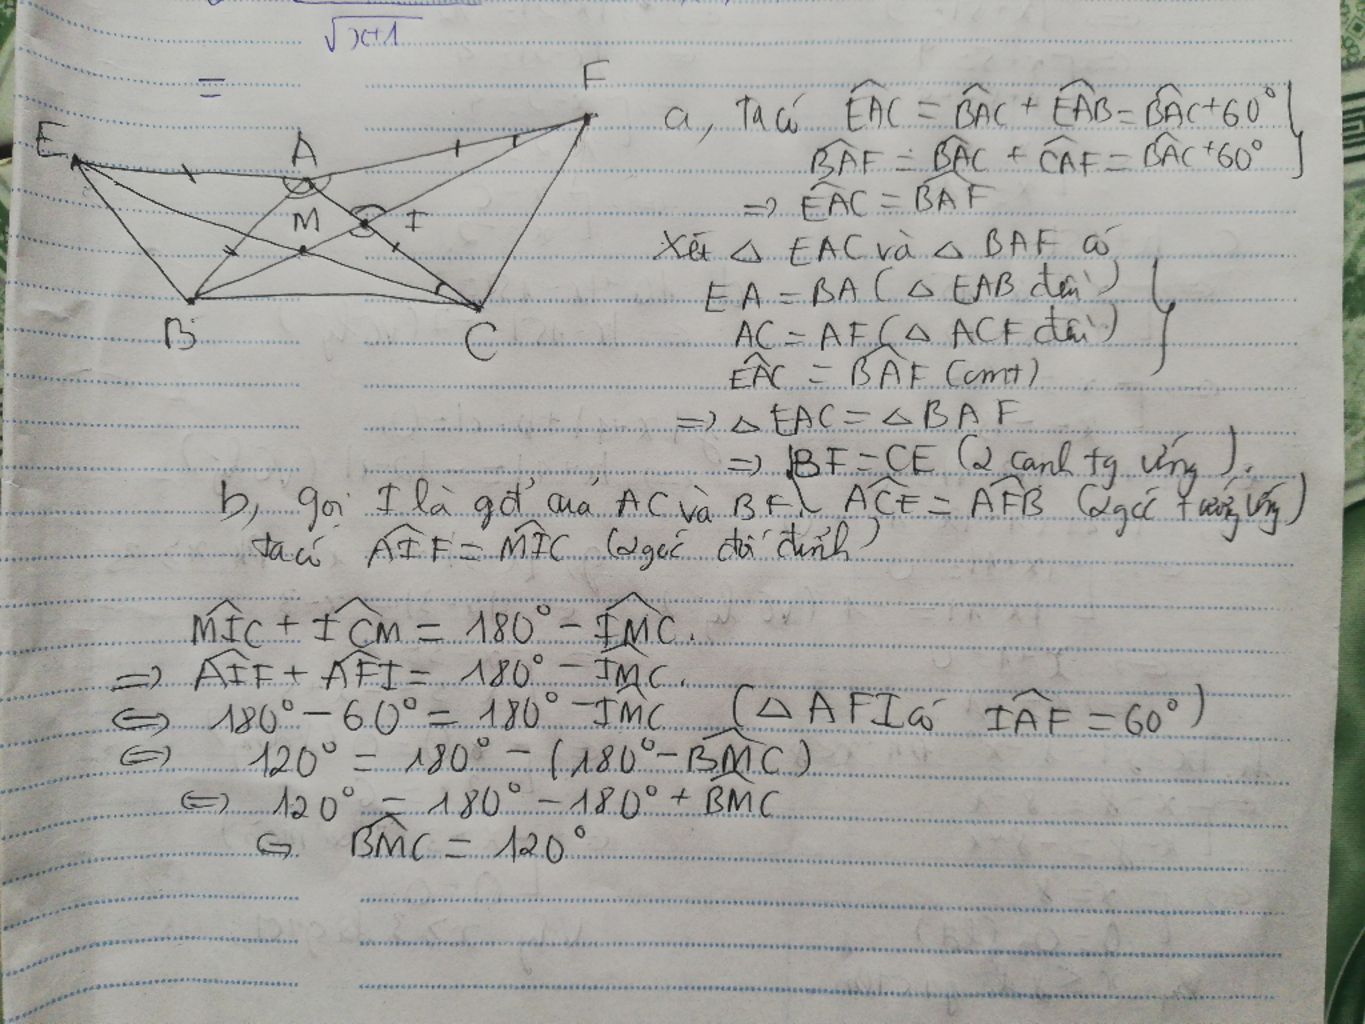 √x+1
=
E
A
F
M
I
B
C
a, ta có ∠EAC = ∠BAC + ∠EAB = ∠BAC + 60°
∠BAF = ∠BAC + ∠CAF = ∠BAC + 60°
=> ∠EAC = ∠BAF
Xét △ EAC và △ BAF có
EA = BA (△ EAB đều)
AC = AF (△ ACF đều)
∠EAC = ∠BAF (cmt)
=> △ EAC = △ BAF
=> BF = CE (2 cạnh tg ứng).
∠ACE = ∠AFB (2 góc tương ứng)
b, gọi I là gđ' của AC và BF
ta có ∠AIF = ∠MIC (2 góc đối đỉnh)
∠MIC + ∠ICM = 180° - ∠IMC.
=> ∠AIF + ∠AFI = 180° - ∠IMC.
<=> 180° - 60° = 180° - ∠IMC (△ AFI có ∠IAF = 60°)
<=> 120° = 180° - (180° - ∠BMC)
<=> 120° = 180° - 180° + ∠BMC
<=> ∠BMC = 120°